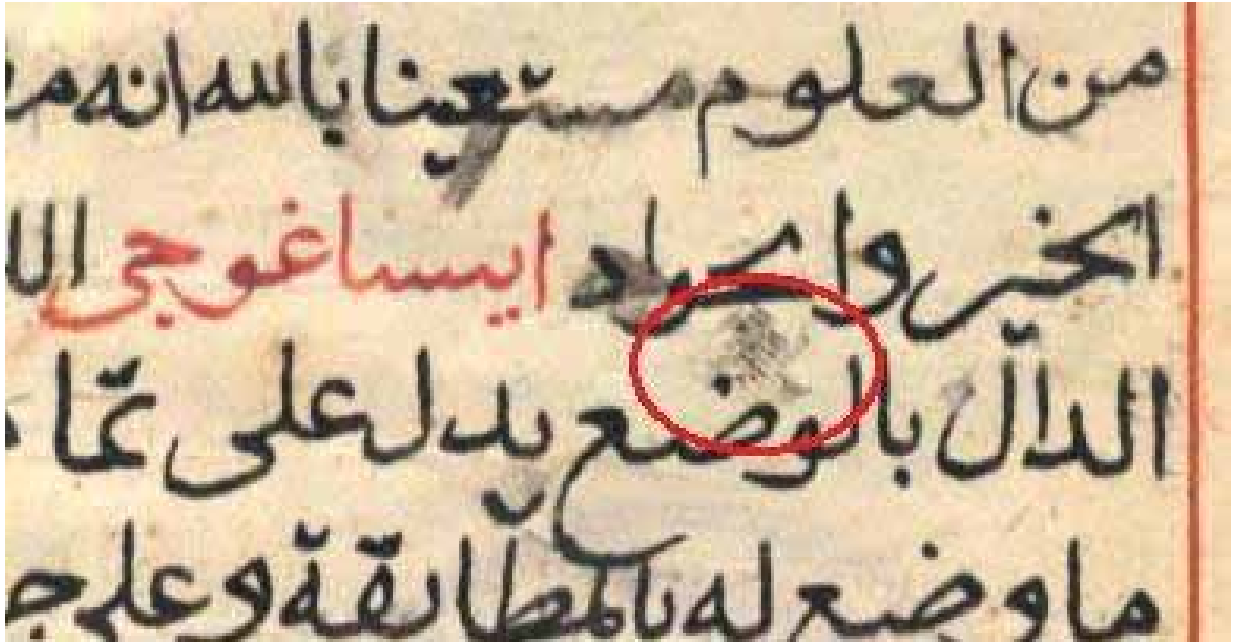 من العلوم مستعينا بالله انه م
الخير وا ايساغوجى الل
الدالّ بالوضع يدل على تمام
ما وضع له بالمطابقة وعلى ج